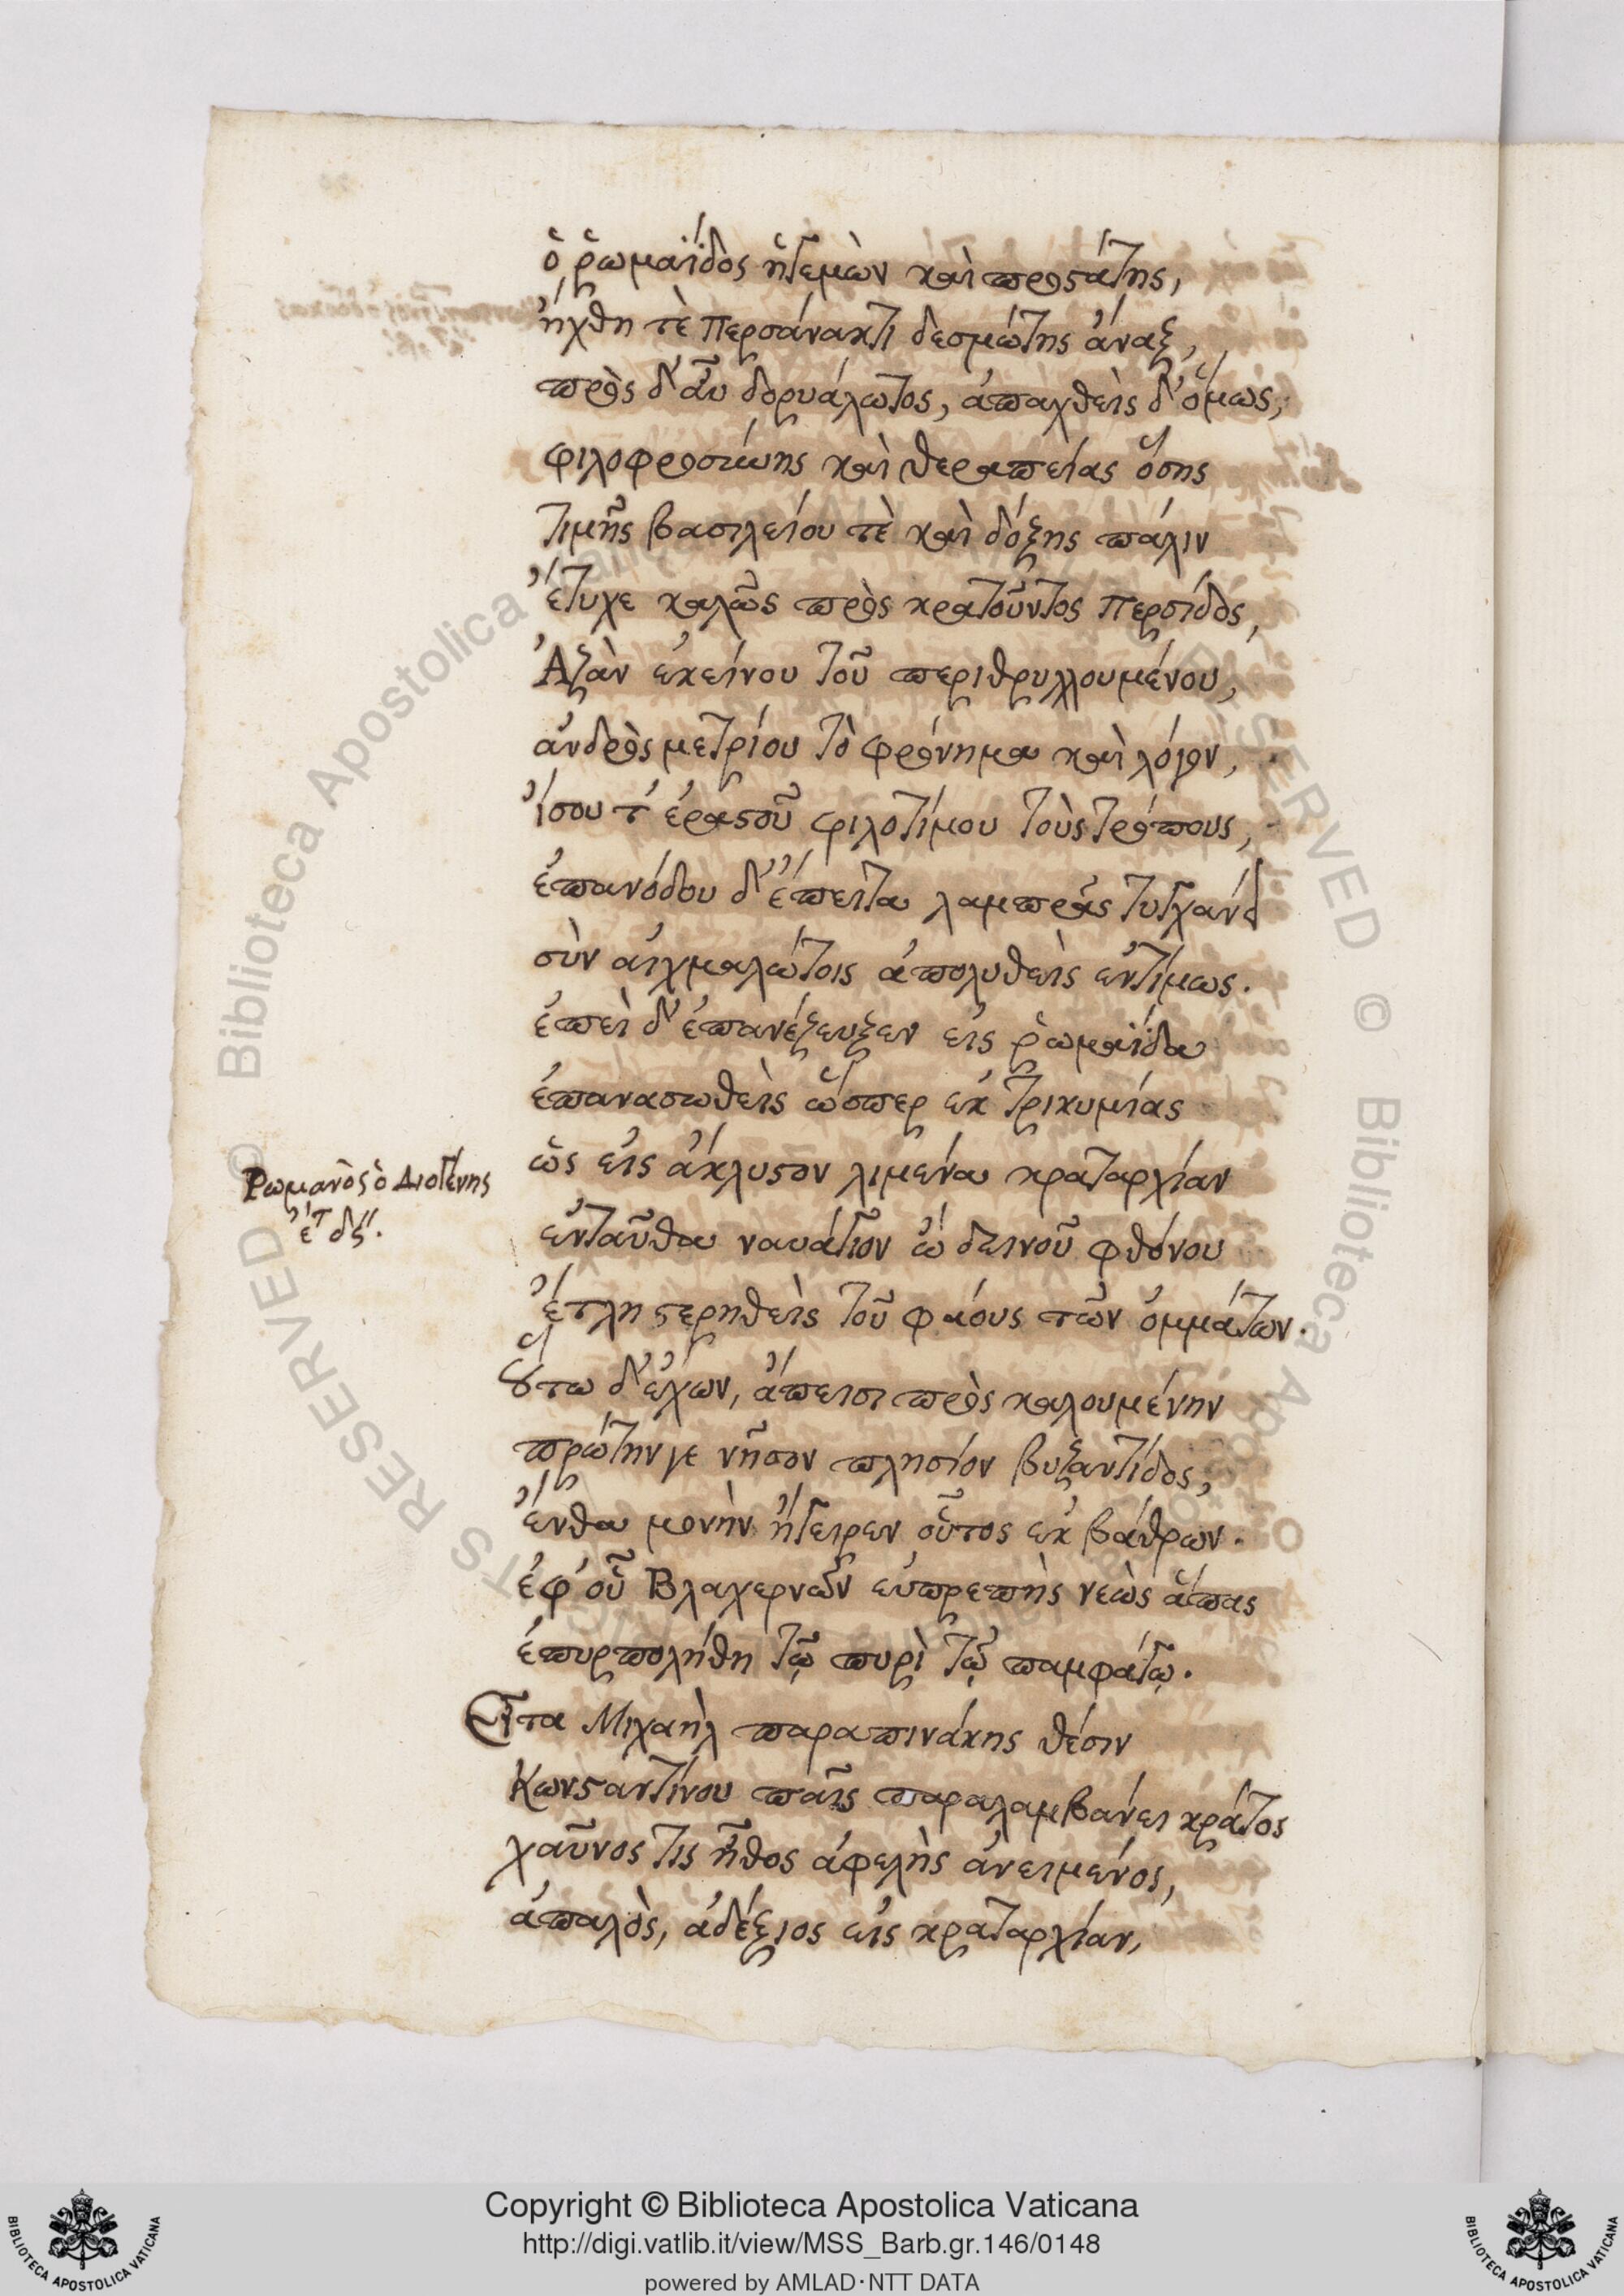 ὁ ῥωμαΐδος ἡγεμὼν καὶ προστάτης,
ἤχθη τὲ Περσάνακτι δεσμώτης ἄναξ,
πρὸς δ' αὖ δορυάλωτος, ἀπαχθεὶς δ' ὅμως,
φιλοφροσύνης καὶ θεραπείας ὅσης
τιμῆς βασιλείου τὲ καὶ δόξης πάλιν
ἔτυχε καλῶς πρὸς κρατοῦντος Περσίδος,
Ἀζὰν ἐκείνου τοῦ περιθρυλλουμένου,
ἀνδρὸς μετρίου τὸ φρόνημα καὶ λόγον,
ἴσου τ' ἐραστοῦ φιλοτίμου τοὺς τρόπους,
ἐπανόδου δ' ἔπειτα λαμπρᾶς τυγχάνει
σὺν αἰχμαλώτοις ἀπολυθεὶς ἐντίμως.
ἐπεὶ δ' ἐπανέζευξεν εἰς ῥωμαΐδα
ἐπανασωθεὶς ὥσπερ ἐκ τρικυμίας
ὡς εἰς ἄκλυστον λιμένα κραταρχίαν
Ῥωμανὸς ὁ Διογένης
ἔτ δς''.
ἐνταῦθα ναυάγιον ὢ δεινοῦ φθόνου
ἔτλη στερηθεὶς τοῦ φάους τῶν ὀμμάτων.
οὕτω δ' ἔχων, ἄπεισι πρὸς καλουμένην
πρώτην γε νῆσον πλησίον βυζαντίδος,
ἔνθα μονὴν ἤγειρεν οὗτος ἐκ βάθρων.
ἐφ' οὗ Βλαχερνῶν εὐπρεπὴς νεὼς ἅπας
ἐπυρπολήθη τῷ πυρὶ τῷ παμφάγῳ.
Εἶτα Μιχαὴλ παραπινάκης θέσιν
Κωνσταντίνου παῖς παραλαμβάνει κράτος
χαῦνος τις ἦθος ἀφελὴς ἀνειμένος,
ἁπαλὸς, ἀδέξιος εἰς κραταρχίαν,
Copyright © Biblioteca Apostolica Vaticana
http://digi.vatlib.it/view/MSS_Barb.gr.146/0148
powered by AMLAD·NTT DATA